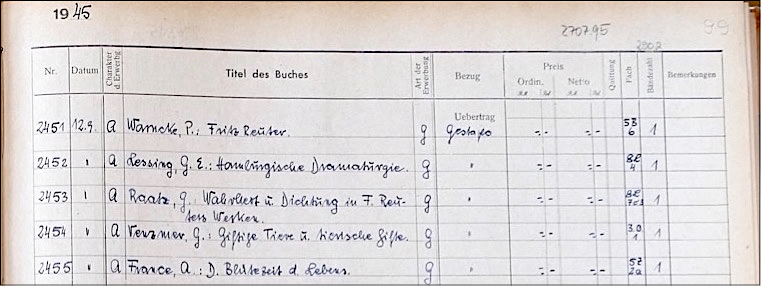 1945
270795
99
2907
Nr. Datum Charakter d. Erwerbg Titel des Buches Art der Erwerbung Bezug Preis Ordin. Netto Quittung Fach Bändezahl Bemerkungen
Uebertrag
2451 12.9. A Warncke, P.: Fritz Reuter. g Gestapo =.- =.- 5B 6 1
2452 " A Lessing, G. E.: Hamburgische Dramaturgie. g " =.- =.- 8L 4 1
2453 " A Raatz, G.: Wahrheit u. Dichtung in F. Reu- g " =.- =.- 8L 1
ters Werken.
2454 " A Venzmer, G.: Giftige Tiere u. tierische Gifte. g " =.- =.- 30 1 1
2455 " A France, A.: D. Blütezeit d. Lebens. g " =.- =.- 5Z 2a 1